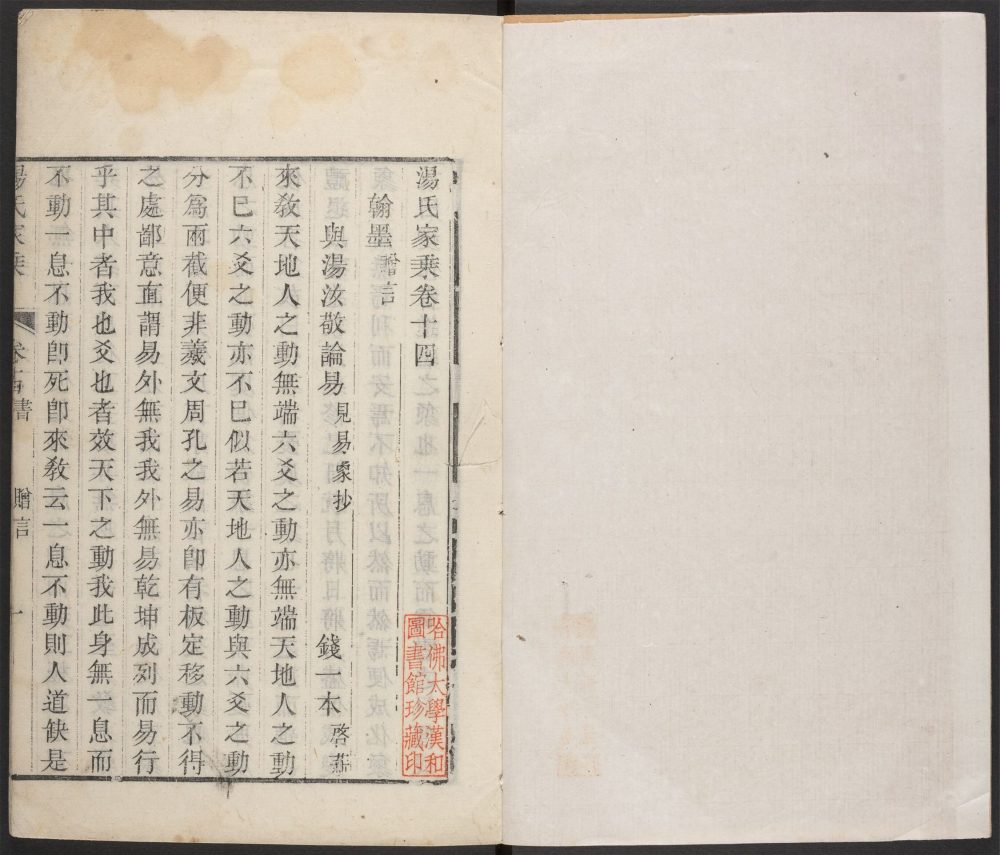 湯氏家乘卷十四
翰墨 贈言
與湯汝敬論易 見易象抄 錢一本 啓新
來教天地人之動無端六爻之動亦無端天地人之動
不已六爻之動亦不已似若天地人之動與六爻之動
分爲兩截便非羲文周孔之易亦卽有板定移動不得
之處鄙意直謂易外無我我外無易乾坤成列而易行
乎其中者我也爻也者效天下之動我此身無一息而
不動一息不動卽死卽來教云一息不動則人道缺是
湯氏家乘 卷十四書 贈言 一
哈佛大學漢和
圖書館珍藏印